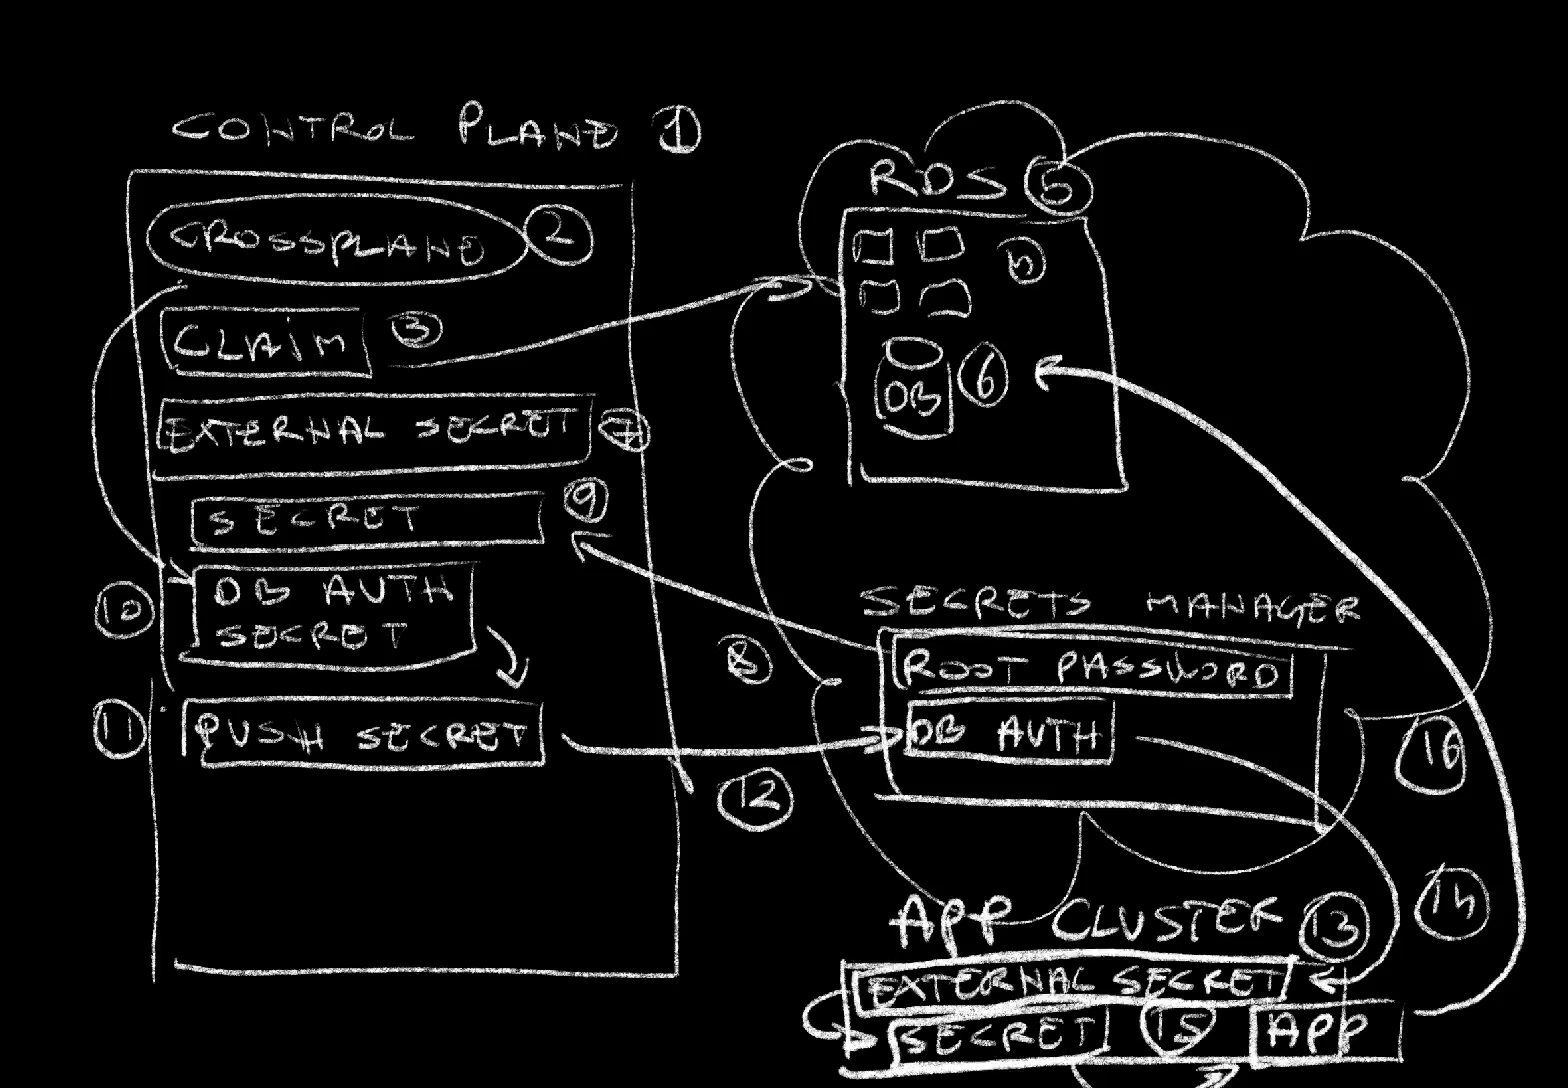 CONTROL PLANE 1
CROSSPLANE 2
CLAIM 3
EXTERNAL SECRET 7
SECRET 9
10 DB AUTH
SECRET
11 PUSH SECRET
8
12
RDS 5
DB 6
SECRETS MANAGER
ROOT PASSWORD
DB AUTH
16
14
APP CLUSTER 13
EXTERNAL SECRET
SECRET 15 APP